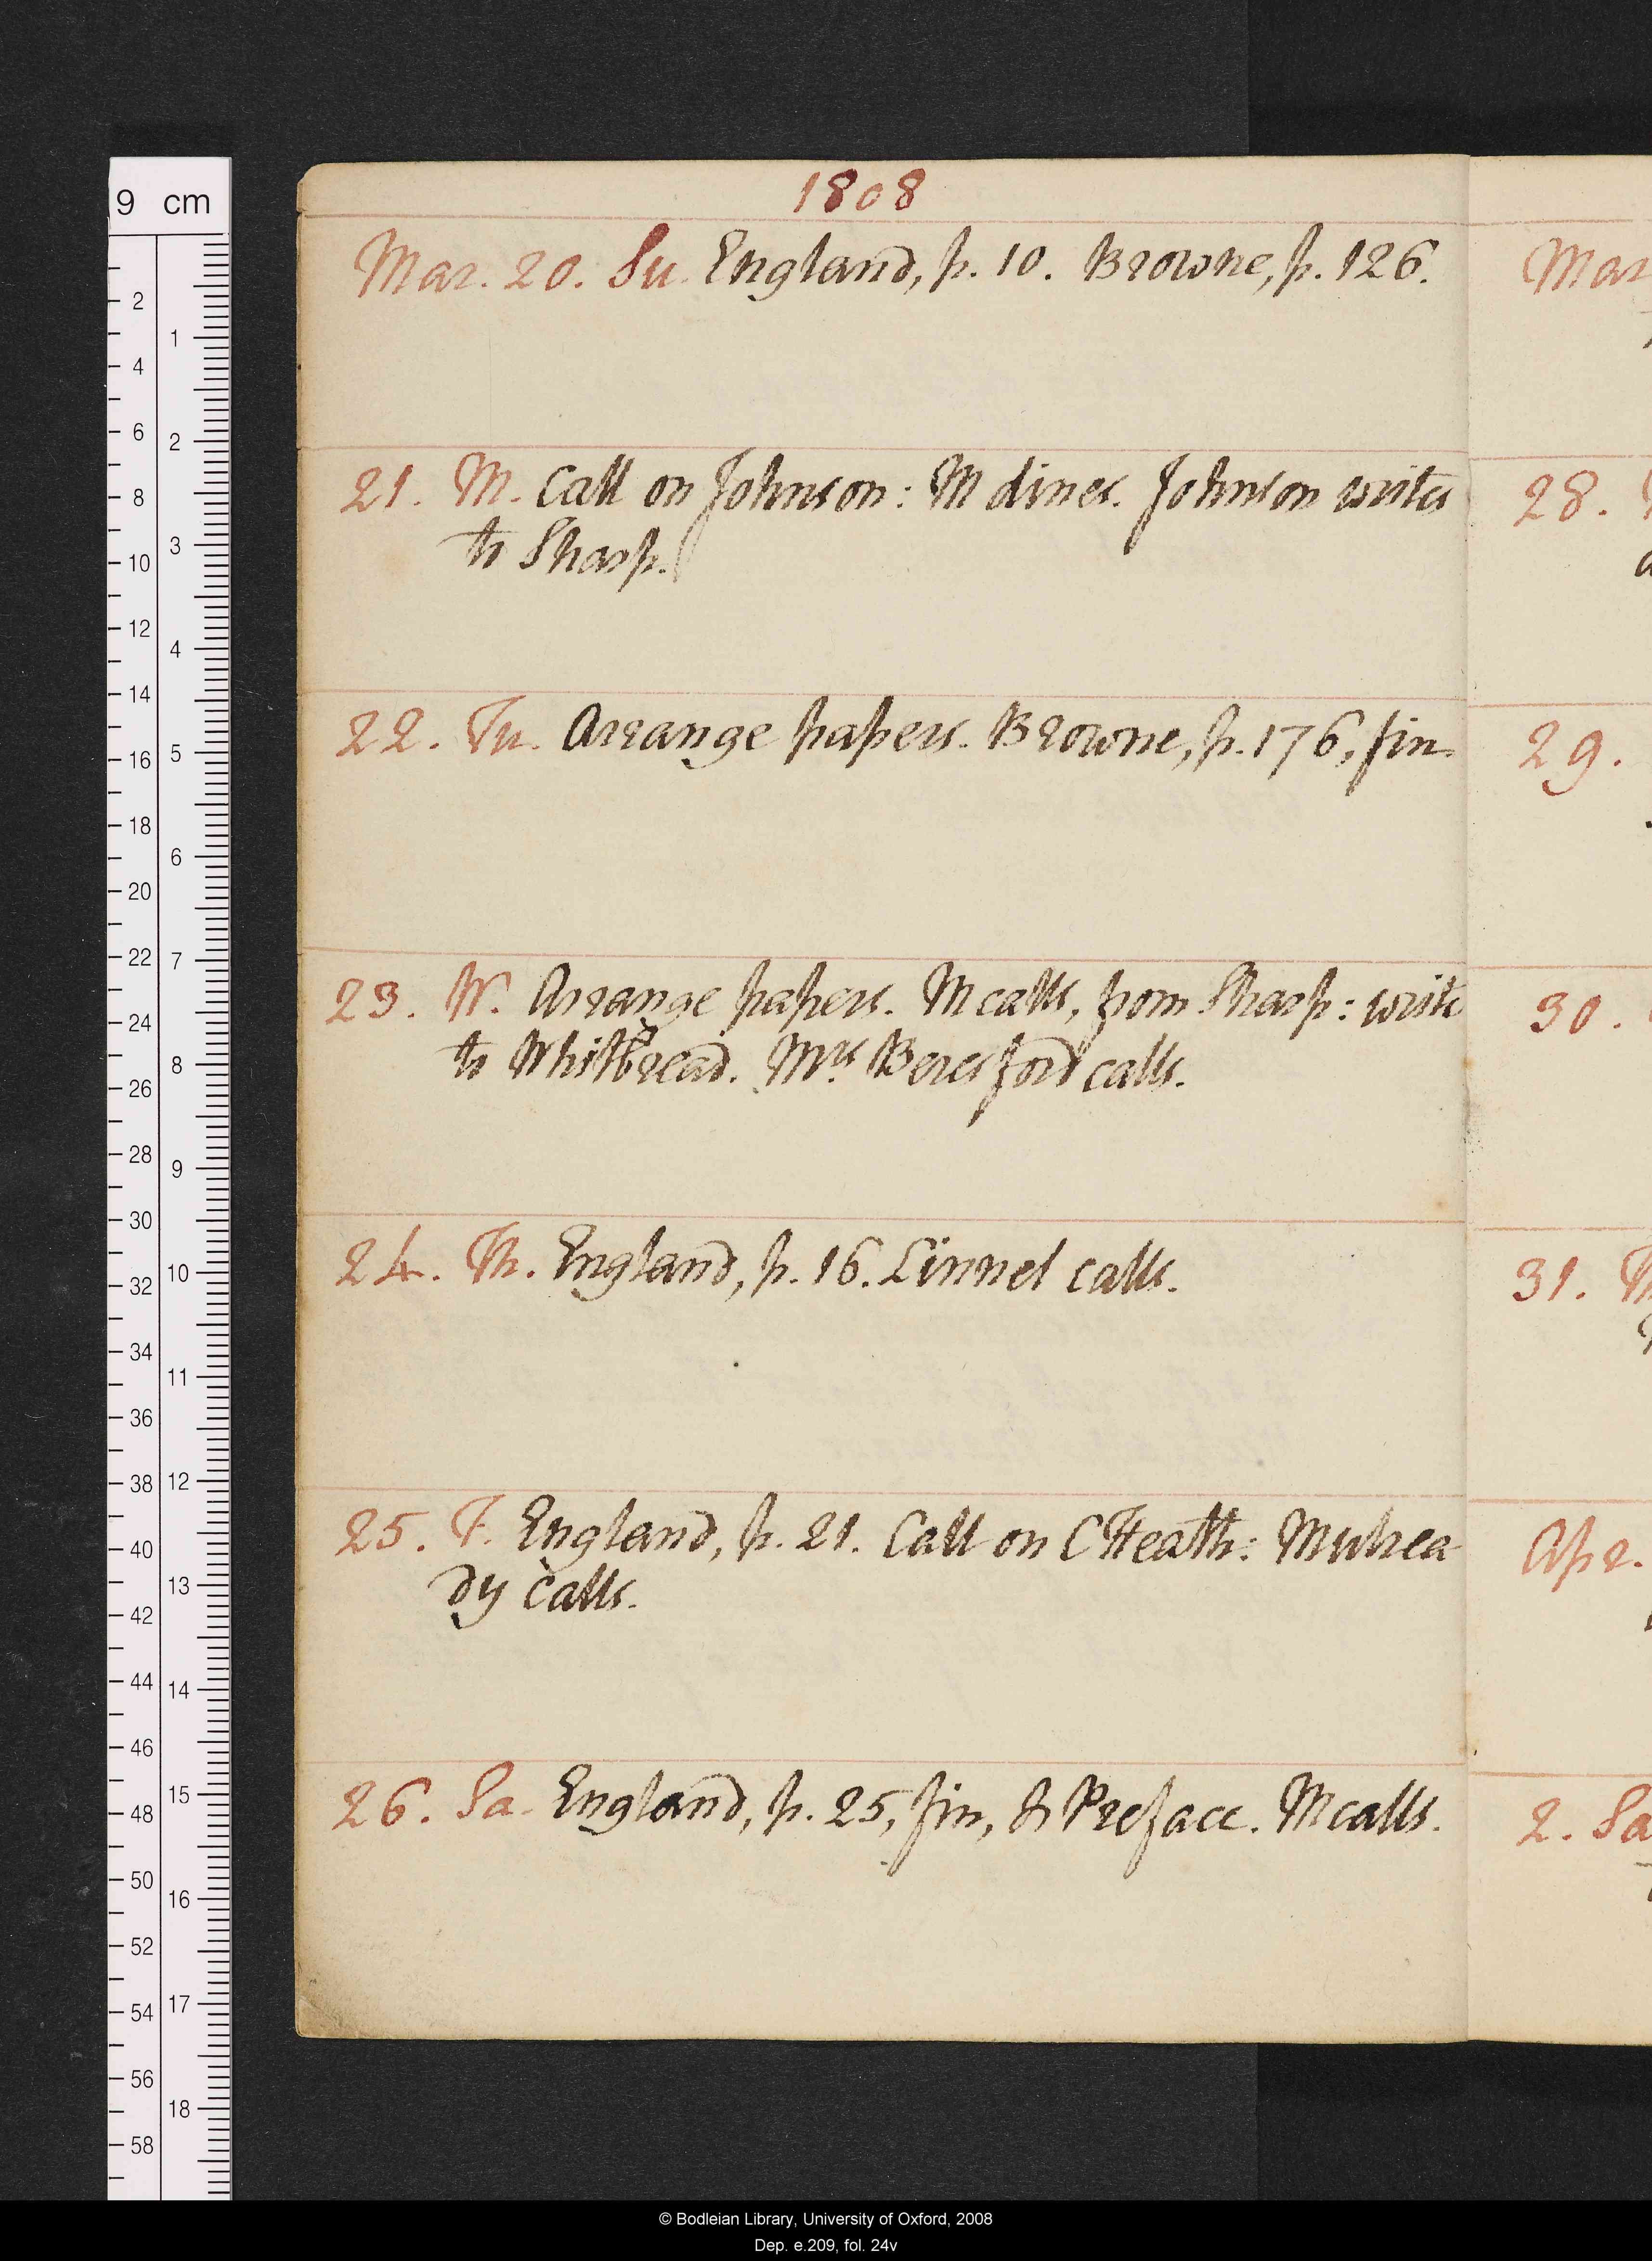 1808
Mar. 20. Su. England, p. 10. Browne, p. 126.
21. M. Call on Johnson: M dines. Johnson writes
to Sharp.
22. Tu. Arrange papers. Browne, p. 176, fin.
23. W. Arrange papers. M calls, from Sharp: write
to Whitbread. Mrs Beresford calls.
24. Th. England, p. 16. Linnel calls.
25. F. England, p. 21. Call on C Heath: Mulrea
dy calls.
26. Sa. England, p. 25, fin, & Preface. M calls.
Mar
28.
29.
30.
31.
Apr.
2. Sa
9 cm
2
4
6
8
10
12
14
16
18
20
22
24
26
28
30
32
34
36
38
40
42
44
46
48
50
52
54
56
58
1
2
3
4
5
6
7
8
9
10
11
12
13
14
15
16
17
18
© Bodleian Library, University of Oxford, 2008
Dep. e.209, fol. 24v